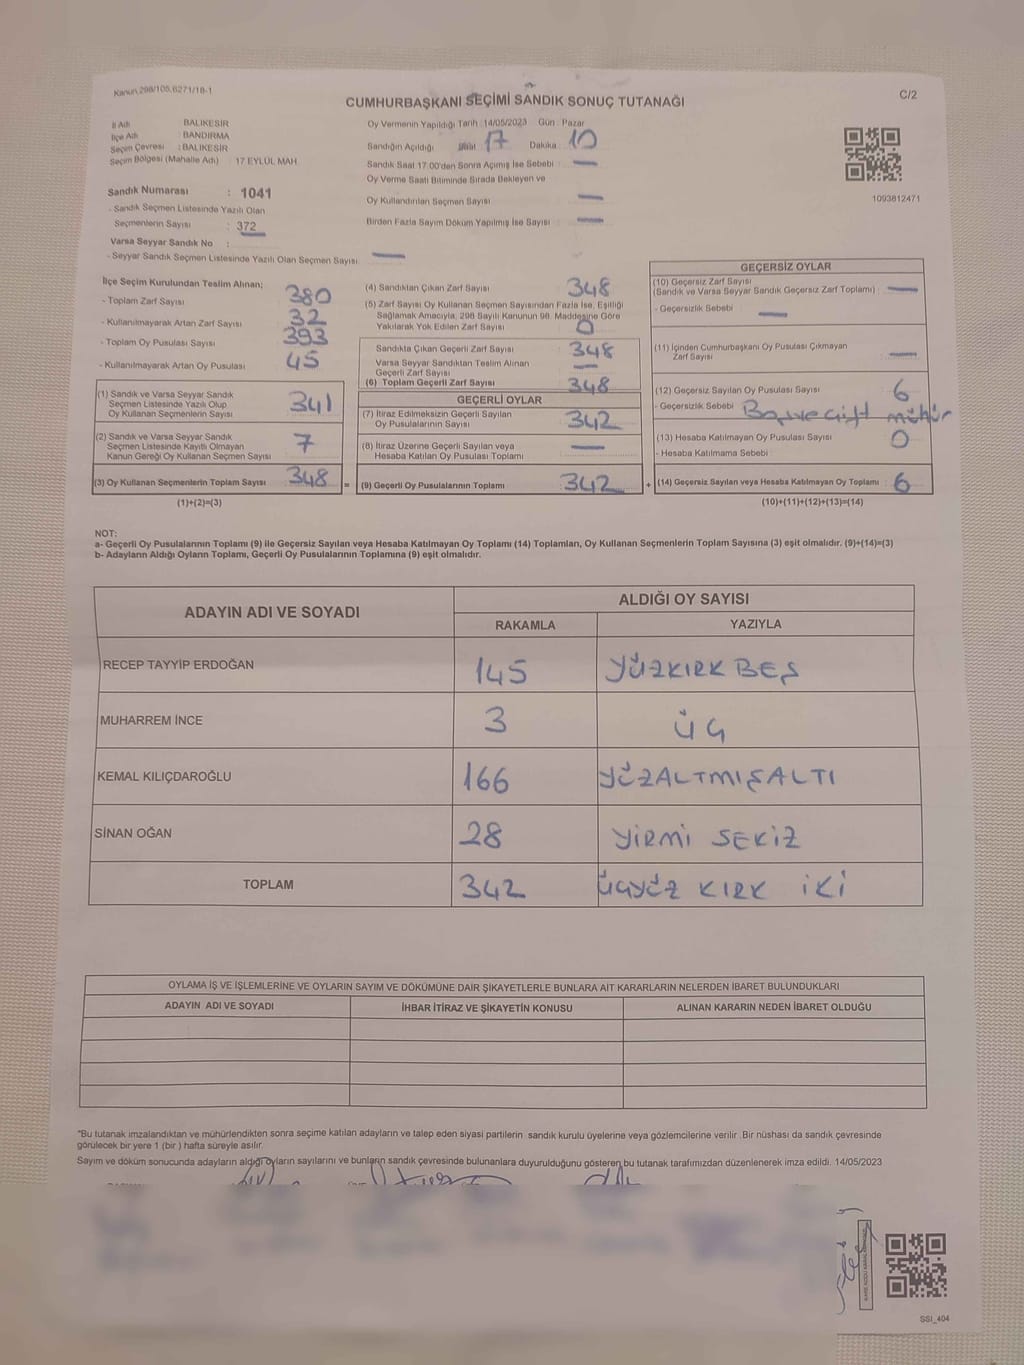 Kanun 298/105,6271/18-1
C/2
CUMHURBAŞKANI SEÇİMİ SANDIK SONUÇ TUTANAĞI
İl Adı : BALIKESİR
İlçe Adı : BANDIRMA
Seçim Çevresi : BALIKESİR
Seçim Bölgesi (Mahalle Adı) : 17 EYLÜL MAH.
Sandık Numarası : 1041
- Sandık Seçmen Listesinde Yazılı Olan
Seçmenlerin Sayısı : 372
Varsa Seyyar Sandık No :
- Seyyar Sandık Seçmen Listesinde Yazılı Olan Seçmen Sayısı: —
Oy Vermenin Yapıldığı Tarih :14/05/2023 Gün : Pazar
Sandığın Açıldığı Saat 17 Dakika : 10
Sandık Saat 17.00'den Sonra Açılmış İse Sebebi : —
Oy Verme Saati Bitiminde Sırada Bekleyen ve
Oy Kullandırılan Seçmen Sayısı : —
Birden Fazla Sayım Döküm Yapılmış İse Sayısı : —
1093812471
İlçe Seçim Kurulundan Teslim Alınan;
- Toplam Zarf Sayısı : 380
- Kullanılmayarak Artan Zarf Sayısı : 32
- Toplam Oy Pusulası Sayısı : 393
- Kullanılmayarak Artan Oy Pusulası : 45
(1) Sandık ve Varsa Seyyar Sandık
Seçmen Listesinde Yazılı Olup
Oy Kullanan Seçmenlerin Sayısı : 341
(2) Sandık ve Varsa Seyyar Sandık
Seçmen Listesinde Kayıtlı Olmayan
Kanun Gereği Oy Kullanan Seçmen Sayısı : 7
(3) Oy Kullanan Seçmenlerin Toplam Sayısı : 348 =
(1)+(2)=(3)
(4) Sandıktan Çıkan Zarf Sayısı : 348
(5) Zarf Sayısı Oy Kullanan Seçmen Sayısından Fazla İse, Eşitliği
Sağlamak Amacıyla, 298 Sayılı Kanunun 98. Maddesine Göre
Yakılarak Yok Edilen Zarf Sayısı : 0
Sandıkta Çıkan Geçerli Zarf Sayısı : 348
Varsa Seyyar Sandıktan Teslim Alınan
Geçerli Zarf Sayısı : —
(6) Toplam Geçerli Zarf Sayısı : 348
GEÇERLİ OYLAR
(7) İtiraz Edilmeksizin Geçerli Sayılan
Oy Pusulalarının Sayısı : 342
(8) İtiraz Üzerine Geçerli Sayılan veya
Hesaba Katılan Oy Pusulası Toplamı : —
(9) Geçerli Oy Pusulalarının Toplamı : 342 +
GEÇERSİZ OYLAR
(10) Geçersiz Zarf Sayısı
(Sandık ve Varsa Seyyar Sandık Geçersiz Zarf Toplamı) : —
- Geçersizlik Sebebi : —
(11) İçinden Cumhurbaşkanı Oy Pusulası Çıkmayan
Zarf Sayısı : —
(12) Geçersiz Sayılan Oy Pusulası Sayısı : 6
- Geçersizlik Sebebi : Boş ve çift mühür
(13) Hesaba Katılmayan Oy Pusulası Sayısı : 0
- Hesaba Katılmama Sebebi :
(14) Geçersiz Sayılan veya Hesaba Katılmayan Oy Toplamı : 6
(10)+(11)+(12)+(13)=(14)
NOT:
a- Geçerli Oy Pusulalarının Toplamı (9) ile Geçersiz Sayılan veya Hesaba Katılmayan Oy Toplamı (14) Toplamları, Oy Kullanan Seçmenlerin Toplam Sayısına (3) eşit olmalıdır. (9)+(14)=(3)
b- Adayların Aldığı Oyların Toplamı, Geçerli Oy Pusulalarının Toplamına (9) eşit olmalıdır.
ADAYIN ADI VE SOYADI
ALDIĞI OY SAYISI
RAKAMLA YAZIYLA
RECEP TAYYİP ERDOĞAN 145 YÜZKIRK BEŞ
MUHARREM İNCE 3 ÜÇ
KEMAL KILIÇDAROĞLU 166 YÜZALTMIŞALTI
SİNAN OĞAN 28 YİRMİ SEKİZ
TOPLAM 342 ÜÇYÜZ KIRK İKİ
OYLAMA İŞ VE İŞLEMLERİNE VE OYLARIN SAYIM VE DÖKÜMÜNE DAİR ŞİKAYETLERLE BUNLARA AİT KARARLARIN NELERDEN İBARET BULUNDUKLARI
ADAYIN ADI VE SOYADI İHBAR İTİRAZ VE ŞİKAYETİN KONUSU ALINAN KARARIN NEDEN İBARET OLDUĞU
*Bu tutanak imzalandıktan ve mühürlendikten sonra seçime katılan adayların ve talep eden siyasi partilerin sandık kurulu üyelerine veya gözlemcilerine verilir. Bir nüshası da sandık çevresinde
görülecek bir yere 1 (bir ) hafta süreyle asılır.
Sayım ve döküm sonucunda adayların aldığı oyların sayılarını ve bunların sandık çevresinde bulunanlara duyurulduğunu gösteren bu tutanak tarafımızdan düzenlenerek imza edildi. 14/05/2023
SSI_404